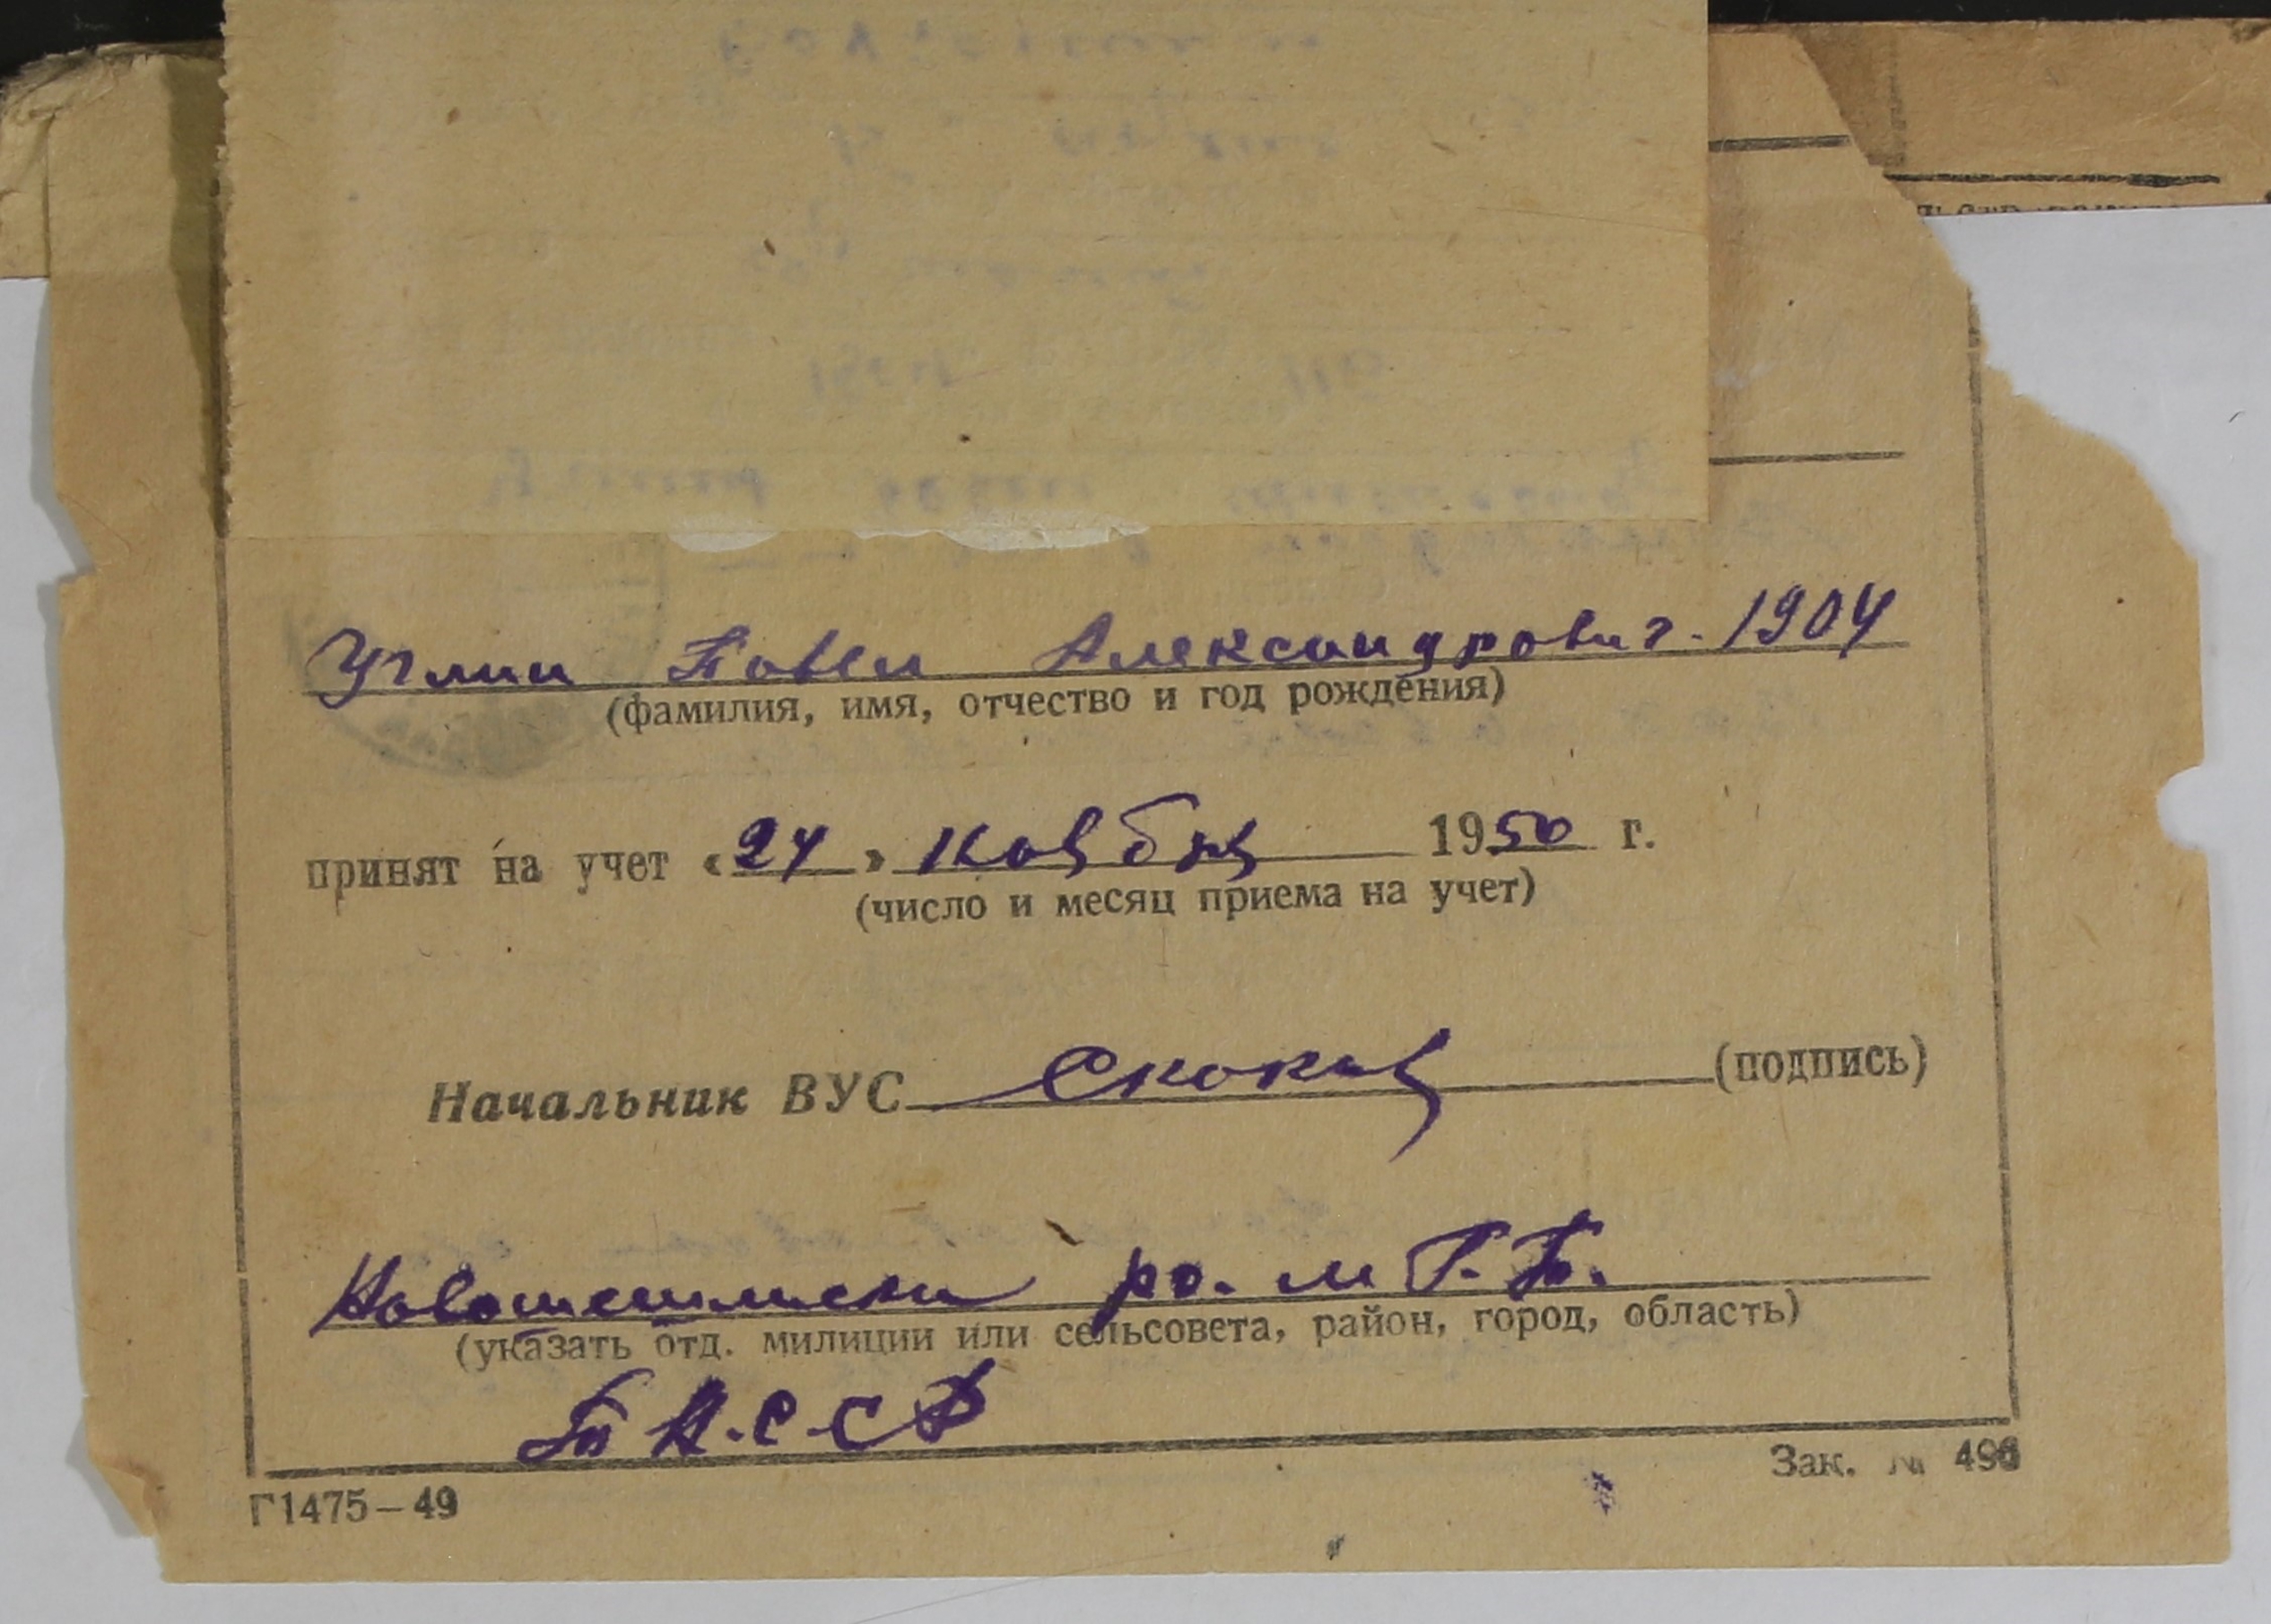 Углин Павел Александрович. 1904
(фамилия, имя, отчество и год рождения)
принят на учет «24» ноября 1950 г.
(число и месяц приема на учет)
Начальник ВУС (подпись)
Новошешминск ро. м Г. Б.
(указать отд. милиции или сельсовета, район, город, область)
Т А.С.С Р
Г1475—49 Зак. №